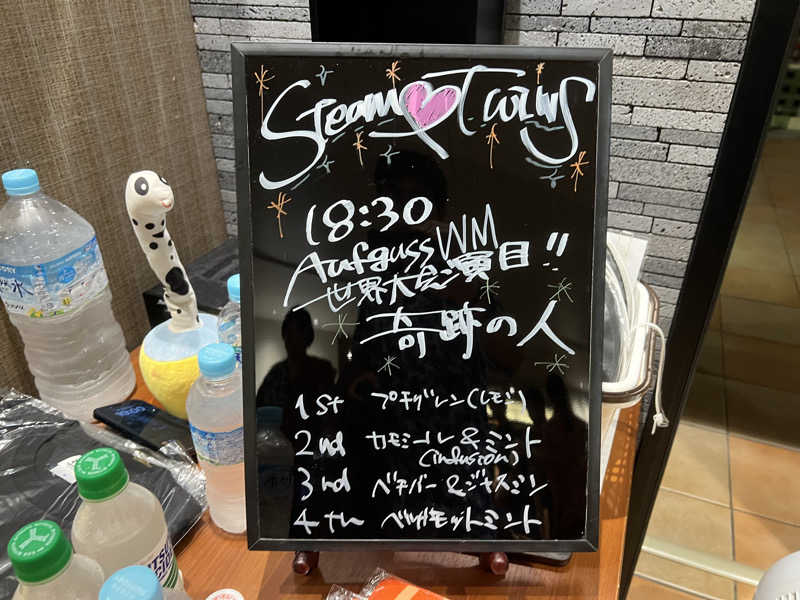 Steam Twins
18:30
Aufguss WM
世界大会演目!!
奇跡の人
1st プチグレン(レモン)
2nd カモミール&ミント
(infusion)
3rd ベチバー&ジャスミン
4th ベルガモットミント